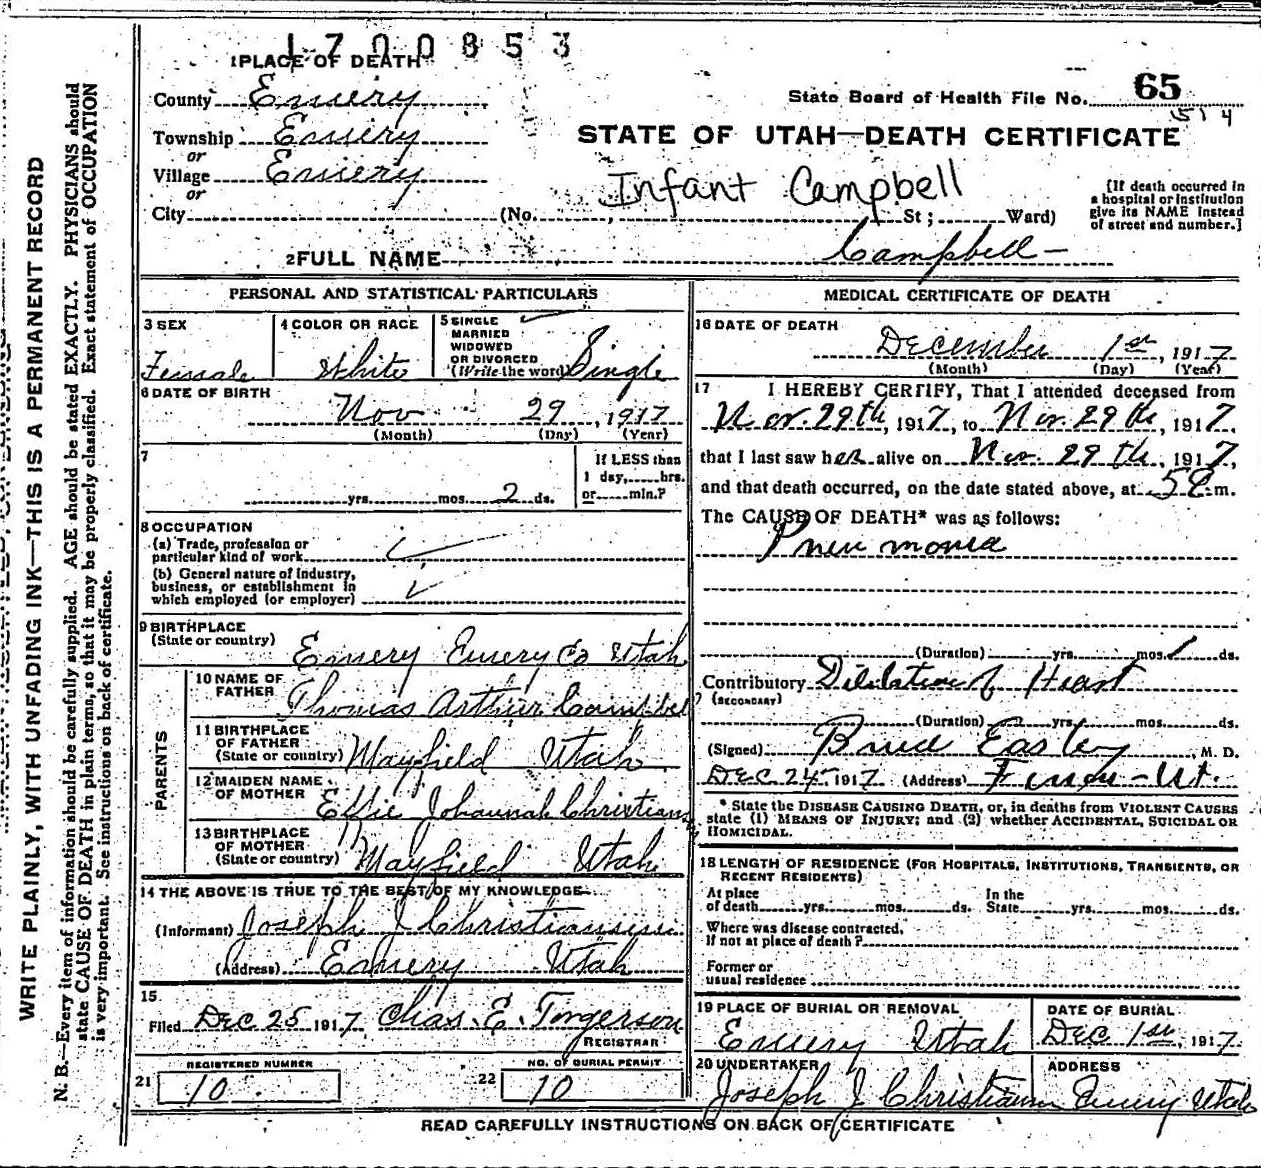 1700853
1 PLACE OF DEATH
County Emery
State Board of Health File No. 65
514
Township Emery
or
STATE OF UTAH—DEATH CERTIFICATE
Village Emery
or
Infant Campbell
City (No. , St; Ward)
[If death occurred in
a hospital or institution
give its NAME instead
of street and number.]
2 FULL NAME Campbell
PERSONAL AND STATISTICAL PARTICULARS
3 SEX
Female
4 COLOR OR RACE
White
5 SINGLE
MARRIED
WIDOWED
OR DIVORCED
(Write the word) Single
6 DATE OF BIRTH
Nov 29, 1917
(Month) (Day) (Year)
7
yrs. mos. 2 ds.
If LESS than
1 day, hrs.
or min.?
8 OCCUPATION
(a) Trade, profession or
particular kind of work
(b) General nature of industry,
business, or establishment in
which employed (or employer)
9 BIRTHPLACE
(State or country) Emery Emery Co Utah
PARENTS
10 NAME OF
FATHER
Thomas Arthur Campbell
11 BIRTHPLACE
OF FATHER
(State or country) Mayfield Utah
12 MAIDEN NAME
OF MOTHER
Effie Johannah Christians
13 BIRTHPLACE
OF MOTHER
(State or country) Mayfield Utah
14 THE ABOVE IS TRUE TO THE BEST OF MY KNOWLEDGE
(Informant) Joseph J Christiansen
(Address) Emery Utah
15
Filed Dec 25 1917 Chas. E. Tingerson
REGISTRAR
REGISTERED NUMBER
21 10
NO. OF BURIAL PERMIT
22 10
MEDICAL CERTIFICATE OF DEATH
16 DATE OF DEATH
December 1st, 1917
(Month) (Day) (Year)
17 I HEREBY CERTIFY, That I attended deceased from
Nov. 29th, 1917, to Nov. 29th, 1917,
that I last saw her alive on Nov. 29th, 1917,
and that death occurred, on the date stated above, at 5 m.
The CAUSE OF DEATH* was as follows:
Pneumonia
(Duration) yrs. mos. ds.
Contributory Dilitation of Heart
(SECONDARY)
(Duration) yrs. mos. ds.
(Signed) Bruce Easley M. D.
Dec 24 1917 (Address) Ferron-Ut.
* State the DISEASE CAUSING DEATH, or, in deaths from VIOLENT CAUSES
state (1) MEANS OF INJURY; and (2) whether ACCIDENTAL, SUICIDAL OR
HOMICIDAL.
18 LENGTH OF RESIDENCE (FOR HOSPITALS, INSTITUTIONS, TRANSIENTS, OR
RECENT RESIDENTS)
At place
of death yrs. mos. ds.
In the
State yrs. mos. ds.
Where was disease contracted,
if not at place of death?
Former or
usual residence
19 PLACE OF BURIAL OR REMOVAL
Emery Utah
DATE OF BURIAL
Dec 1st, 1917
20 UNDERTAKER
Joseph J Christiansen
ADDRESS
Emery Utah
READ CAREFULLY INSTRUCTIONS ON BACK OF CERTIFICATE
WRITE PLAINLY, WITH UNFADING INK—THIS IS A PERMANENT RECORD
N. B.—Every item of information should be carefully supplied. AGE should be stated EXACTLY. PHYSICIANS should
state CAUSE OF DEATH in plain terms, so that it may be properly classified. Exact statement of OCCUPATION
is very important. See instructions on back of certificate.